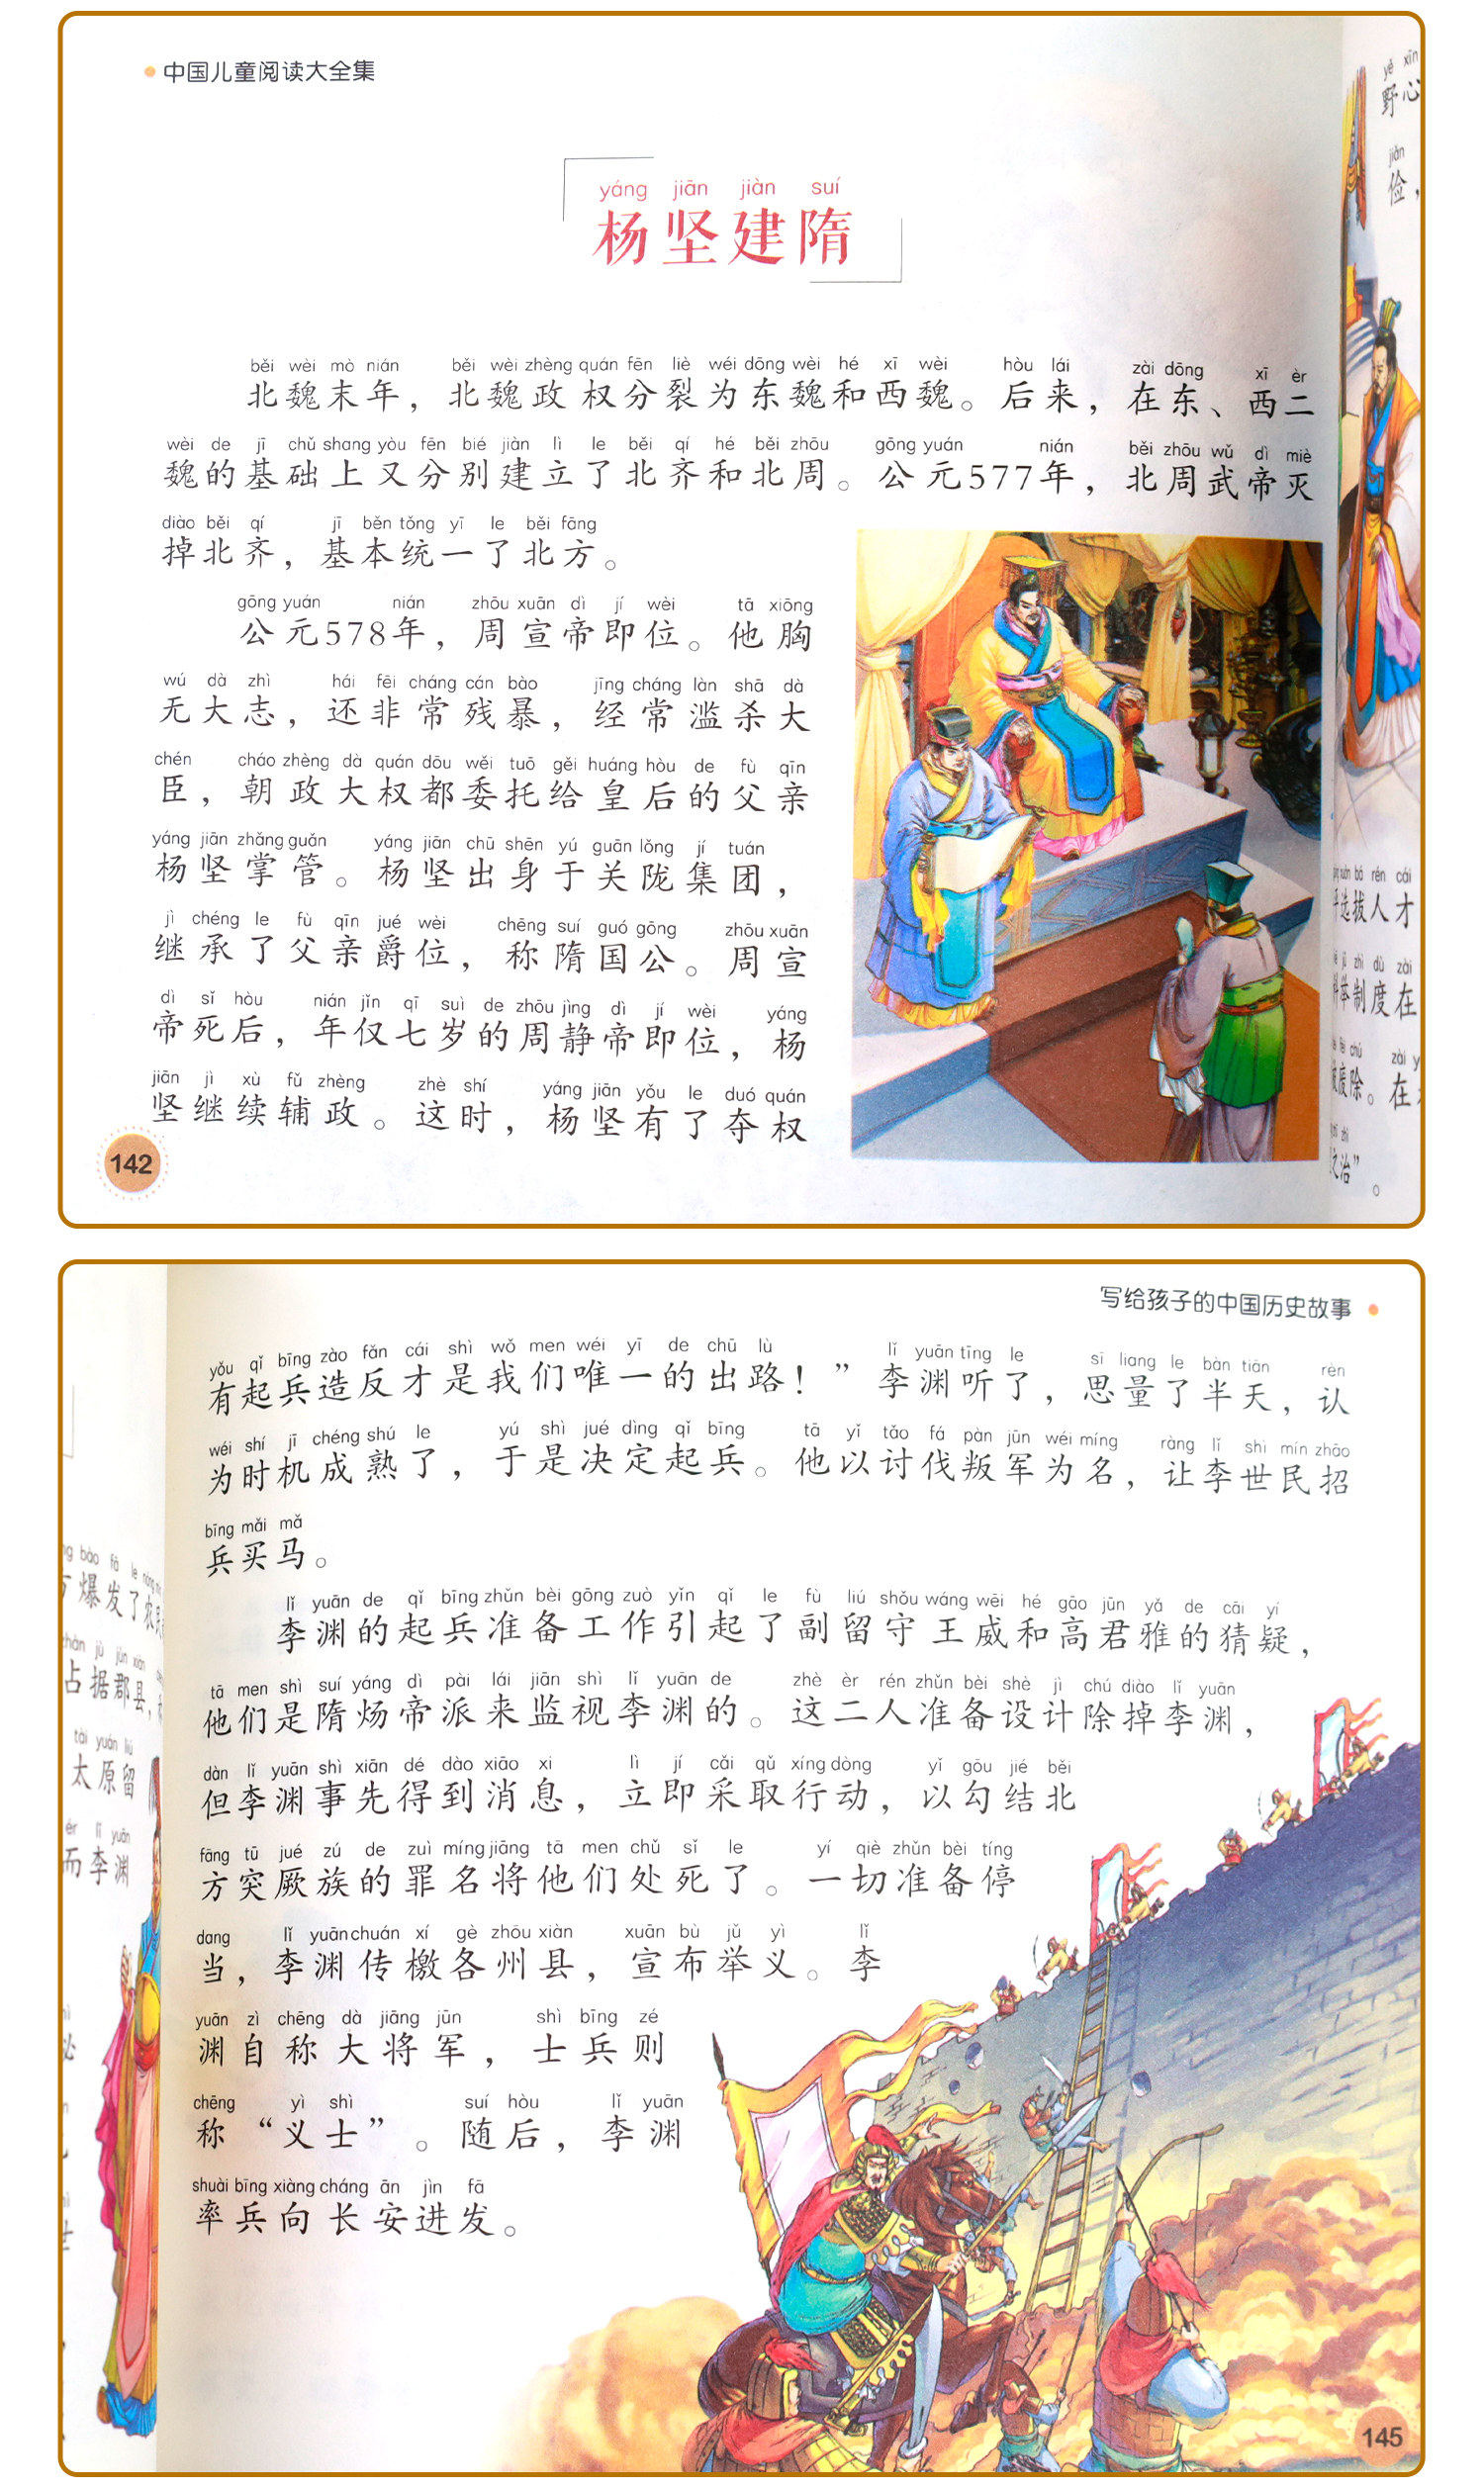 中国儿童阅读大全集
yáng jiān jiàn suí
杨坚建隋
běi wèi mò nián běi wèi zhèng quán fēn liè wéi dōng wèi hé xī wèi hòu lái zài dōng xī èr
北魏末年，北魏政权分裂为东魏和西魏。后来，在东、西二
wèi de jī chǔ shang yòu fēn bié jiàn lì le běi qí hé běi zhōu gōng yuán nián běi zhōu wǔ dì miè
魏的基础上又分别建立了北齐和北周。公元577年，北周武帝灭
diào běi qí jī běn tǒng yī le běi fāng
掉北齐，基本统一了北方。
gōng yuán nián zhōu xuān dì jí wèi tā xiōng
公元578年，周宣帝即位。他胸
wú dà zhì hái fēi cháng cán bào jīng cháng làn shā dà
无大志，还非常残暴，经常滥杀大
chén cháo zhèng dà quán dōu wěi tuō gěi huáng hòu de fù qīn
臣，朝政大权都委托给皇后的父亲
yáng jiān zhǎng guǎn yáng jiān chū shēn yú guān lǒng jí tuán
杨坚掌管。杨坚出身于关陇集团，
jì chéng le fù qīn jué wèi chēng suí guó gōng zhōu xuān
继承了父亲爵位，称隋国公。周宣
dì sǐ hòu nián jǐn qī suì de zhōu jìng dì jí wèi yáng
帝死后，年仅七岁的周静帝即位，杨
jiān jì xù fǔ zhèng zhè shí yáng jiān yǒu le duó quán
坚继续辅政。这时，杨坚有了夺权
142
yě xīn
野心
jiǎn
俭，
xuǎn bá rén cái
选拔人才
jǔ zhì dù zài
举制度在
fèi chú zài
废除。在
zhī zhì
之治”。
写给孩子的中国历史故事
yǒu qǐ bīng zào fǎn cái shì wǒ men wéi yī de chū lù lǐ yuān tīng le sī liang le bàn tiān rèn
有起兵造反才是我们唯一的出路！”李渊听了，思量了半天，认
wéi shí jī chéng shú le yú shì jué dìng qǐ bīng tā yǐ tǎo fá pàn jūn wéi míng ràng lǐ shì mín zhāo
为时机成熟了，于是决定起兵。他以讨伐叛军为名，让李世民招
bīng mǎi mǎ
兵买马。
lǐ yuān de qǐ bīng zhǔn bèi gōng zuò yǐn qǐ le fù liú shǒu wáng wēi hé gāo jūn yǎ de cāi yí
李渊的起兵准备工作引起了副留守王威和高君雅的猜疑，
tā men shì suí yáng dì pài lái jiān shì lǐ yuān de zhè èr rén zhǔn bèi shè jì chú diào lǐ yuān
他们是隋炀帝派来监视李渊的。这二人准备设计除掉李渊，
dàn lǐ yuān shì xiān dé dào xiāo xi lì jí cǎi qǔ xíng dòng yǐ gōu jié běi
但李渊事先得到消息，立即采取行动，以勾结北
fāng tū jué zú de zuì míng jiāng tā men chǔ sǐ le yí qiè zhǔn bèi tíng
方突厥族的罪名将他们处死了。一切准备停
dang lǐ yuān chuán xí gè zhōu xiàn xuān bù jǔ yì lǐ
当，李渊传檄各州县，宣布举义。李
yuān zì chēng dà jiāng jūn shì bīng zé
渊自称大将军，士兵则
chēng yì shì suí hòu lǐ yuān
称“义士”。随后，李渊
shuài bīng xiàng cháng ān jìn fā
率兵向长安进发。
bào fā le
爆发了农民
jù jùn xiàn
占据郡县，
tài yuán liú
太原留
ér lǐ yuān
而李渊
145